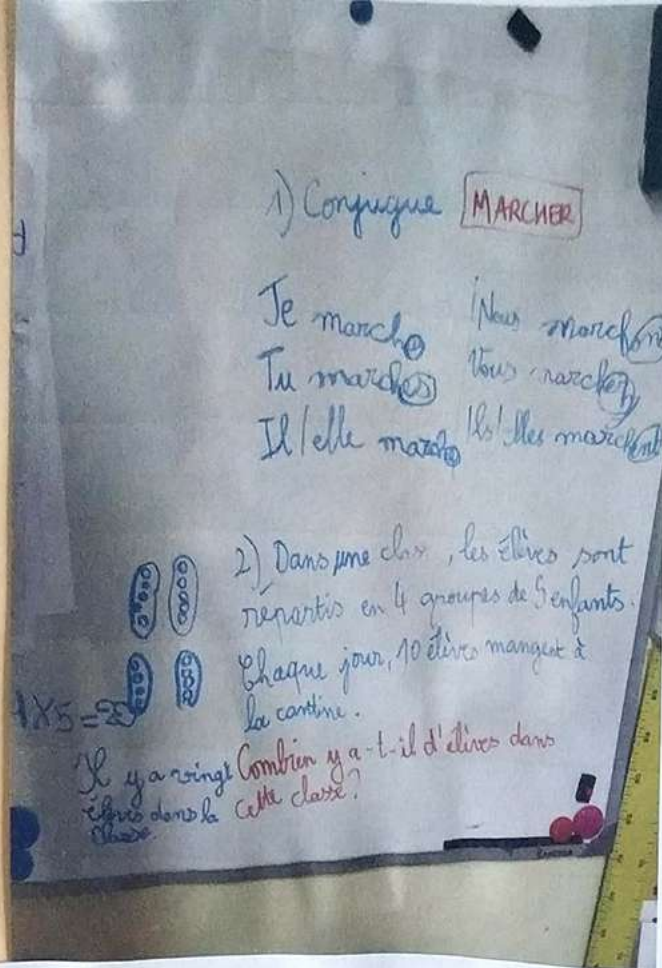 1) Conjugue MARCHER
Je marche
Tu marches
Il/elle marche
Nous marchon
Vous marchez
Ils/Elles marchent
2) Dans une classe, les élèves sont
répartis en 4 groupes de 5 enfants.
Chaque jour, 10 élèves mangent à
la cantine.
Combien y a-t-il d'élèves dans
cette classe?
4X5=20
Il y a vingt
élèves dans la
classe.